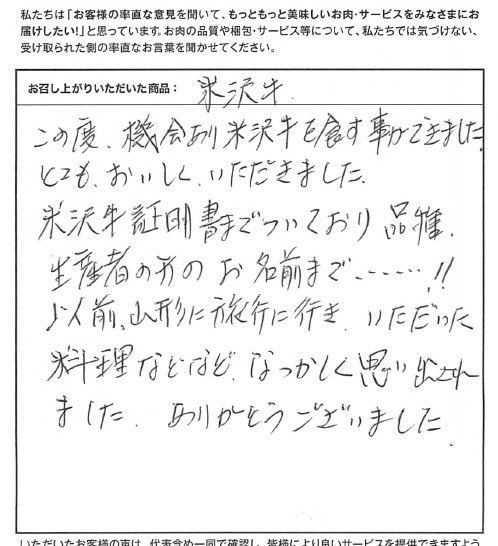 私たちは「お客様の率直な意見を聞いて、もっともっと美味しいお肉・サービスをみなさまにお
届けしたい!」と思っています。お肉の品質や梱包・サービス等について、私たちでは気づけない、
受け取られた側の率直なお言葉を聞かせてください。
お召し上がりいただいた商品: 米沢牛.
この度、機会あり米沢牛を食す事ができました
とても、おいしく、いただきました.
米沢牛証明書までついており品種、
生産者の方のお名前まで……!!
以前、山形に旅行に行き、いただいた
料理などなど、なつかしく思い出され
ました. ありがとうございました.
いただいたお客様の声は、代表含め一同で確認し、皆様により良いサービスを提供できますよう